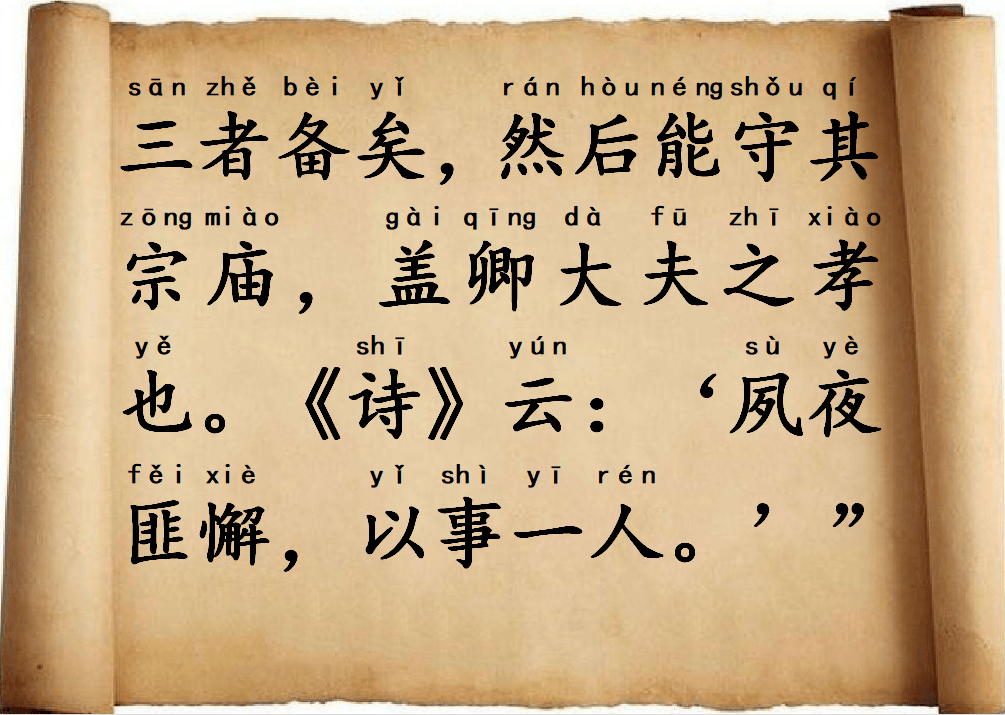 sān zhě bèi yǐ rán hòu néng shǒu qí
三者备矣，然后能守其
zōng miào gài qīng dà fū zhī xiào
宗庙，盖卿大夫之孝
yě shī yún sù yè
也。《诗》云：‘夙夜
fěi xiè yǐ shì yī rén
匪懈，以事一人。’”